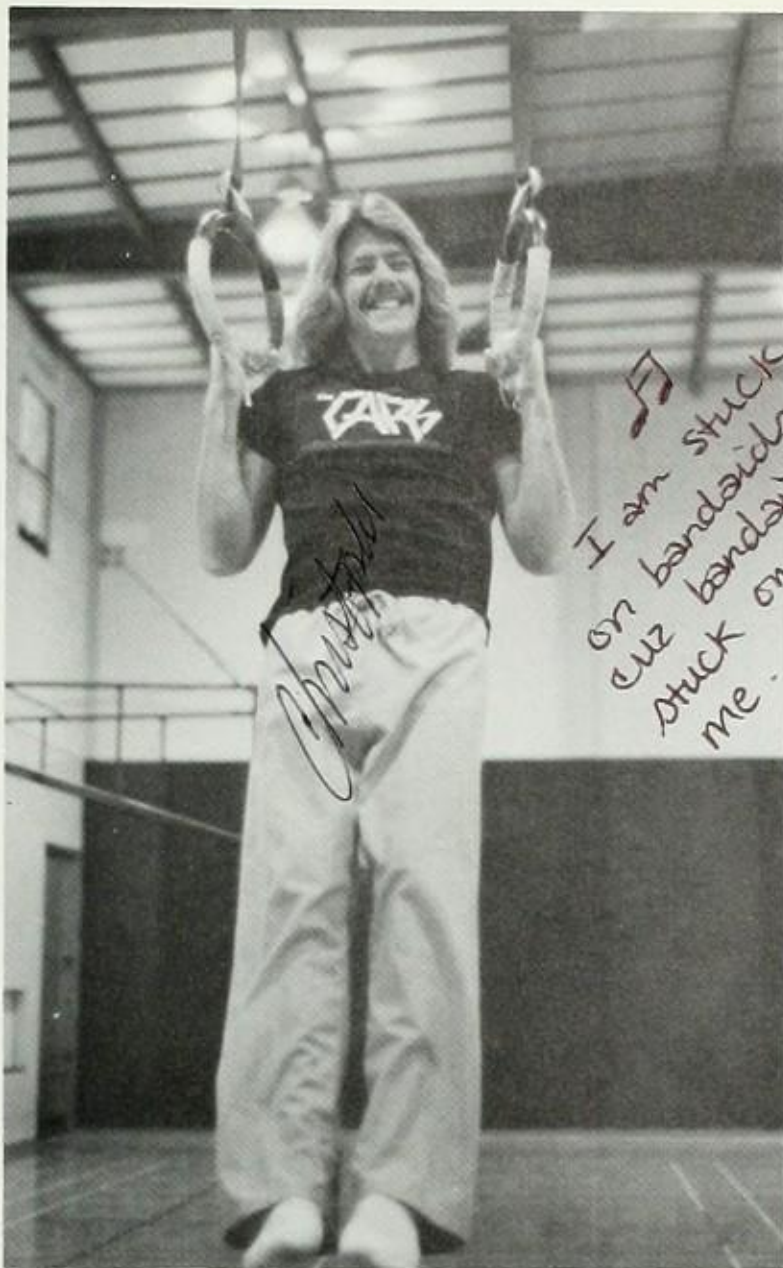 CARS
I am stuck
on bandaid
cuz bandai
stuck on
me.